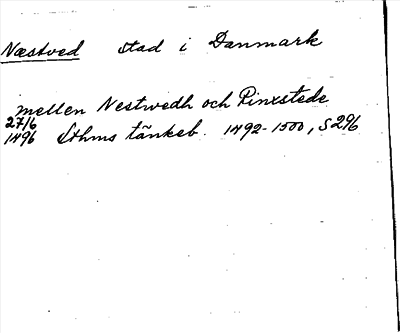 Næstved stad i Danmark
mellen Nestwedh och Pinxstede
27/6
1496 Sthms tänkeb. 1492-1500, S 296